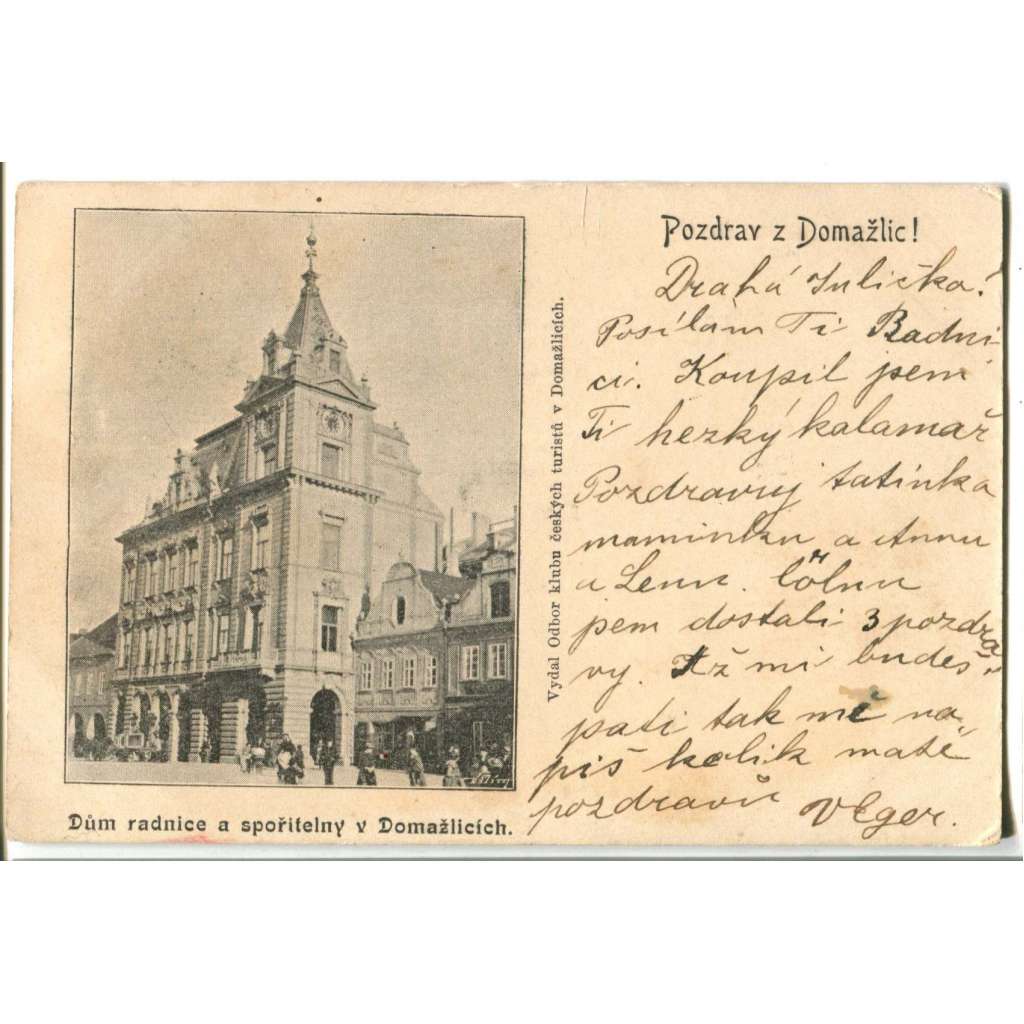 Pozdrav z Domažlic!
Drahá Juličko!
Posílám Ti Radni
ci. Koupil jsem
Ti hezký kalamař
Pozdravuj tatínka
maminku a Annu
a
jsem dostali 3 pozdra
vy. Až mi budeš
psáti tak mě na
piš kolik máte
pozdravů
Vydal Odbor klubu českých turistů v Domažlicích.
Dům radnice a spořitelny v Domažlicích.